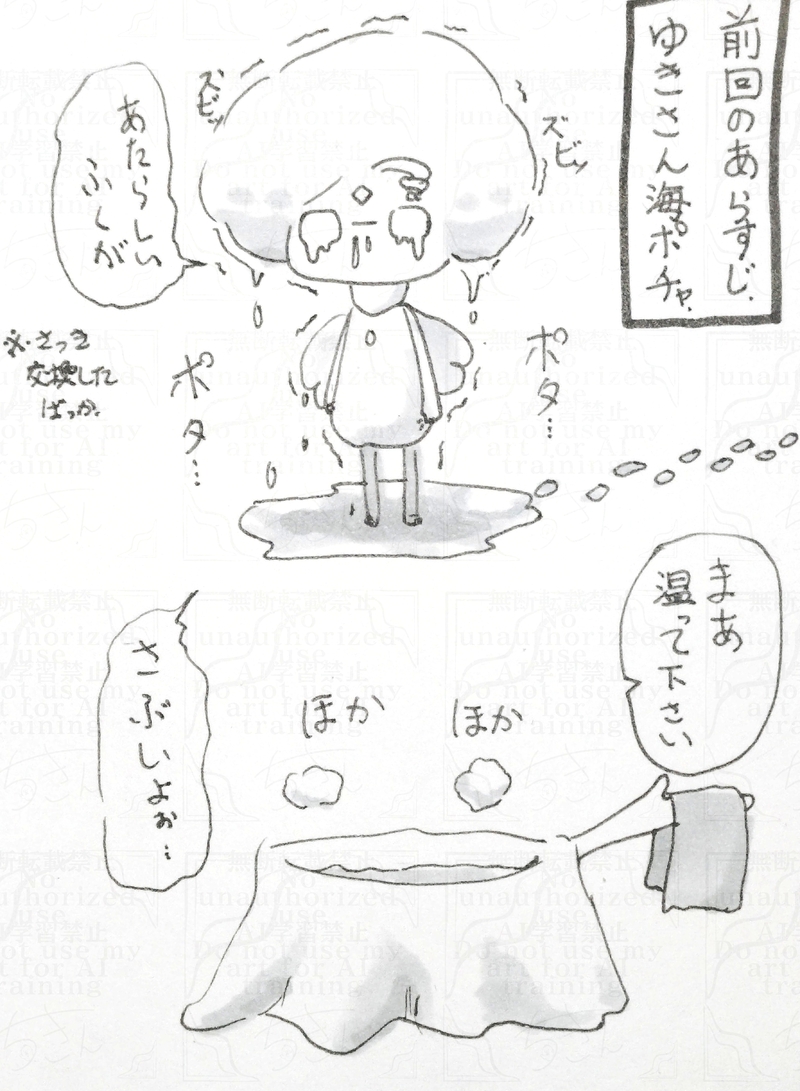 前回のあらすじ。
ゆきさん海ポチャ。
ズビッ
ズビッ
あたらしい
ふくが
※さっき
交換した
ばっか。
ポタ…
ポタ…
まあ
温って下さい
ほか
ほか
さぶいよぉ…
無断転載禁止
No
unauthorized
use
AI学習禁止
Do not use my
art for AI
training